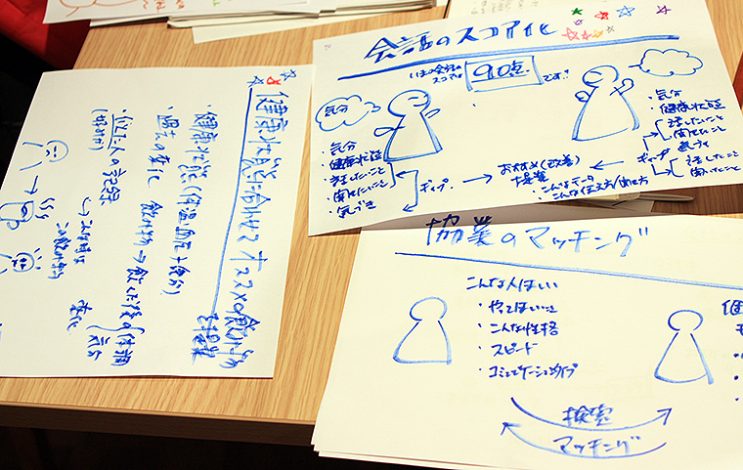 会話のスコア化
いまの会話の
スコアは
90点
です!
気分
・気分
・健康状態
・話したいこと
・聞きたいこと
・気づき
ギャップ
おすすめ(改善)
提案
・こんなデータ
・こんな伝え方/聞き方
・気分
・健康状態
話したいこと
聞きたいこと
気づき
ギャップ
話したいこと
聞きたいこと
健康状態に合わせてオススメの飲み物
提案
・健康状態(体温・血圧+気分)
・過去の変化 飲み物→飲んだ後の体調
気分
変化
・似た人の記録
協業のマッチング
こんな人ほしい
・やってほしいこと
・こんな性格
・スピード
・コミュニケーションタイプ
検索
マッチング